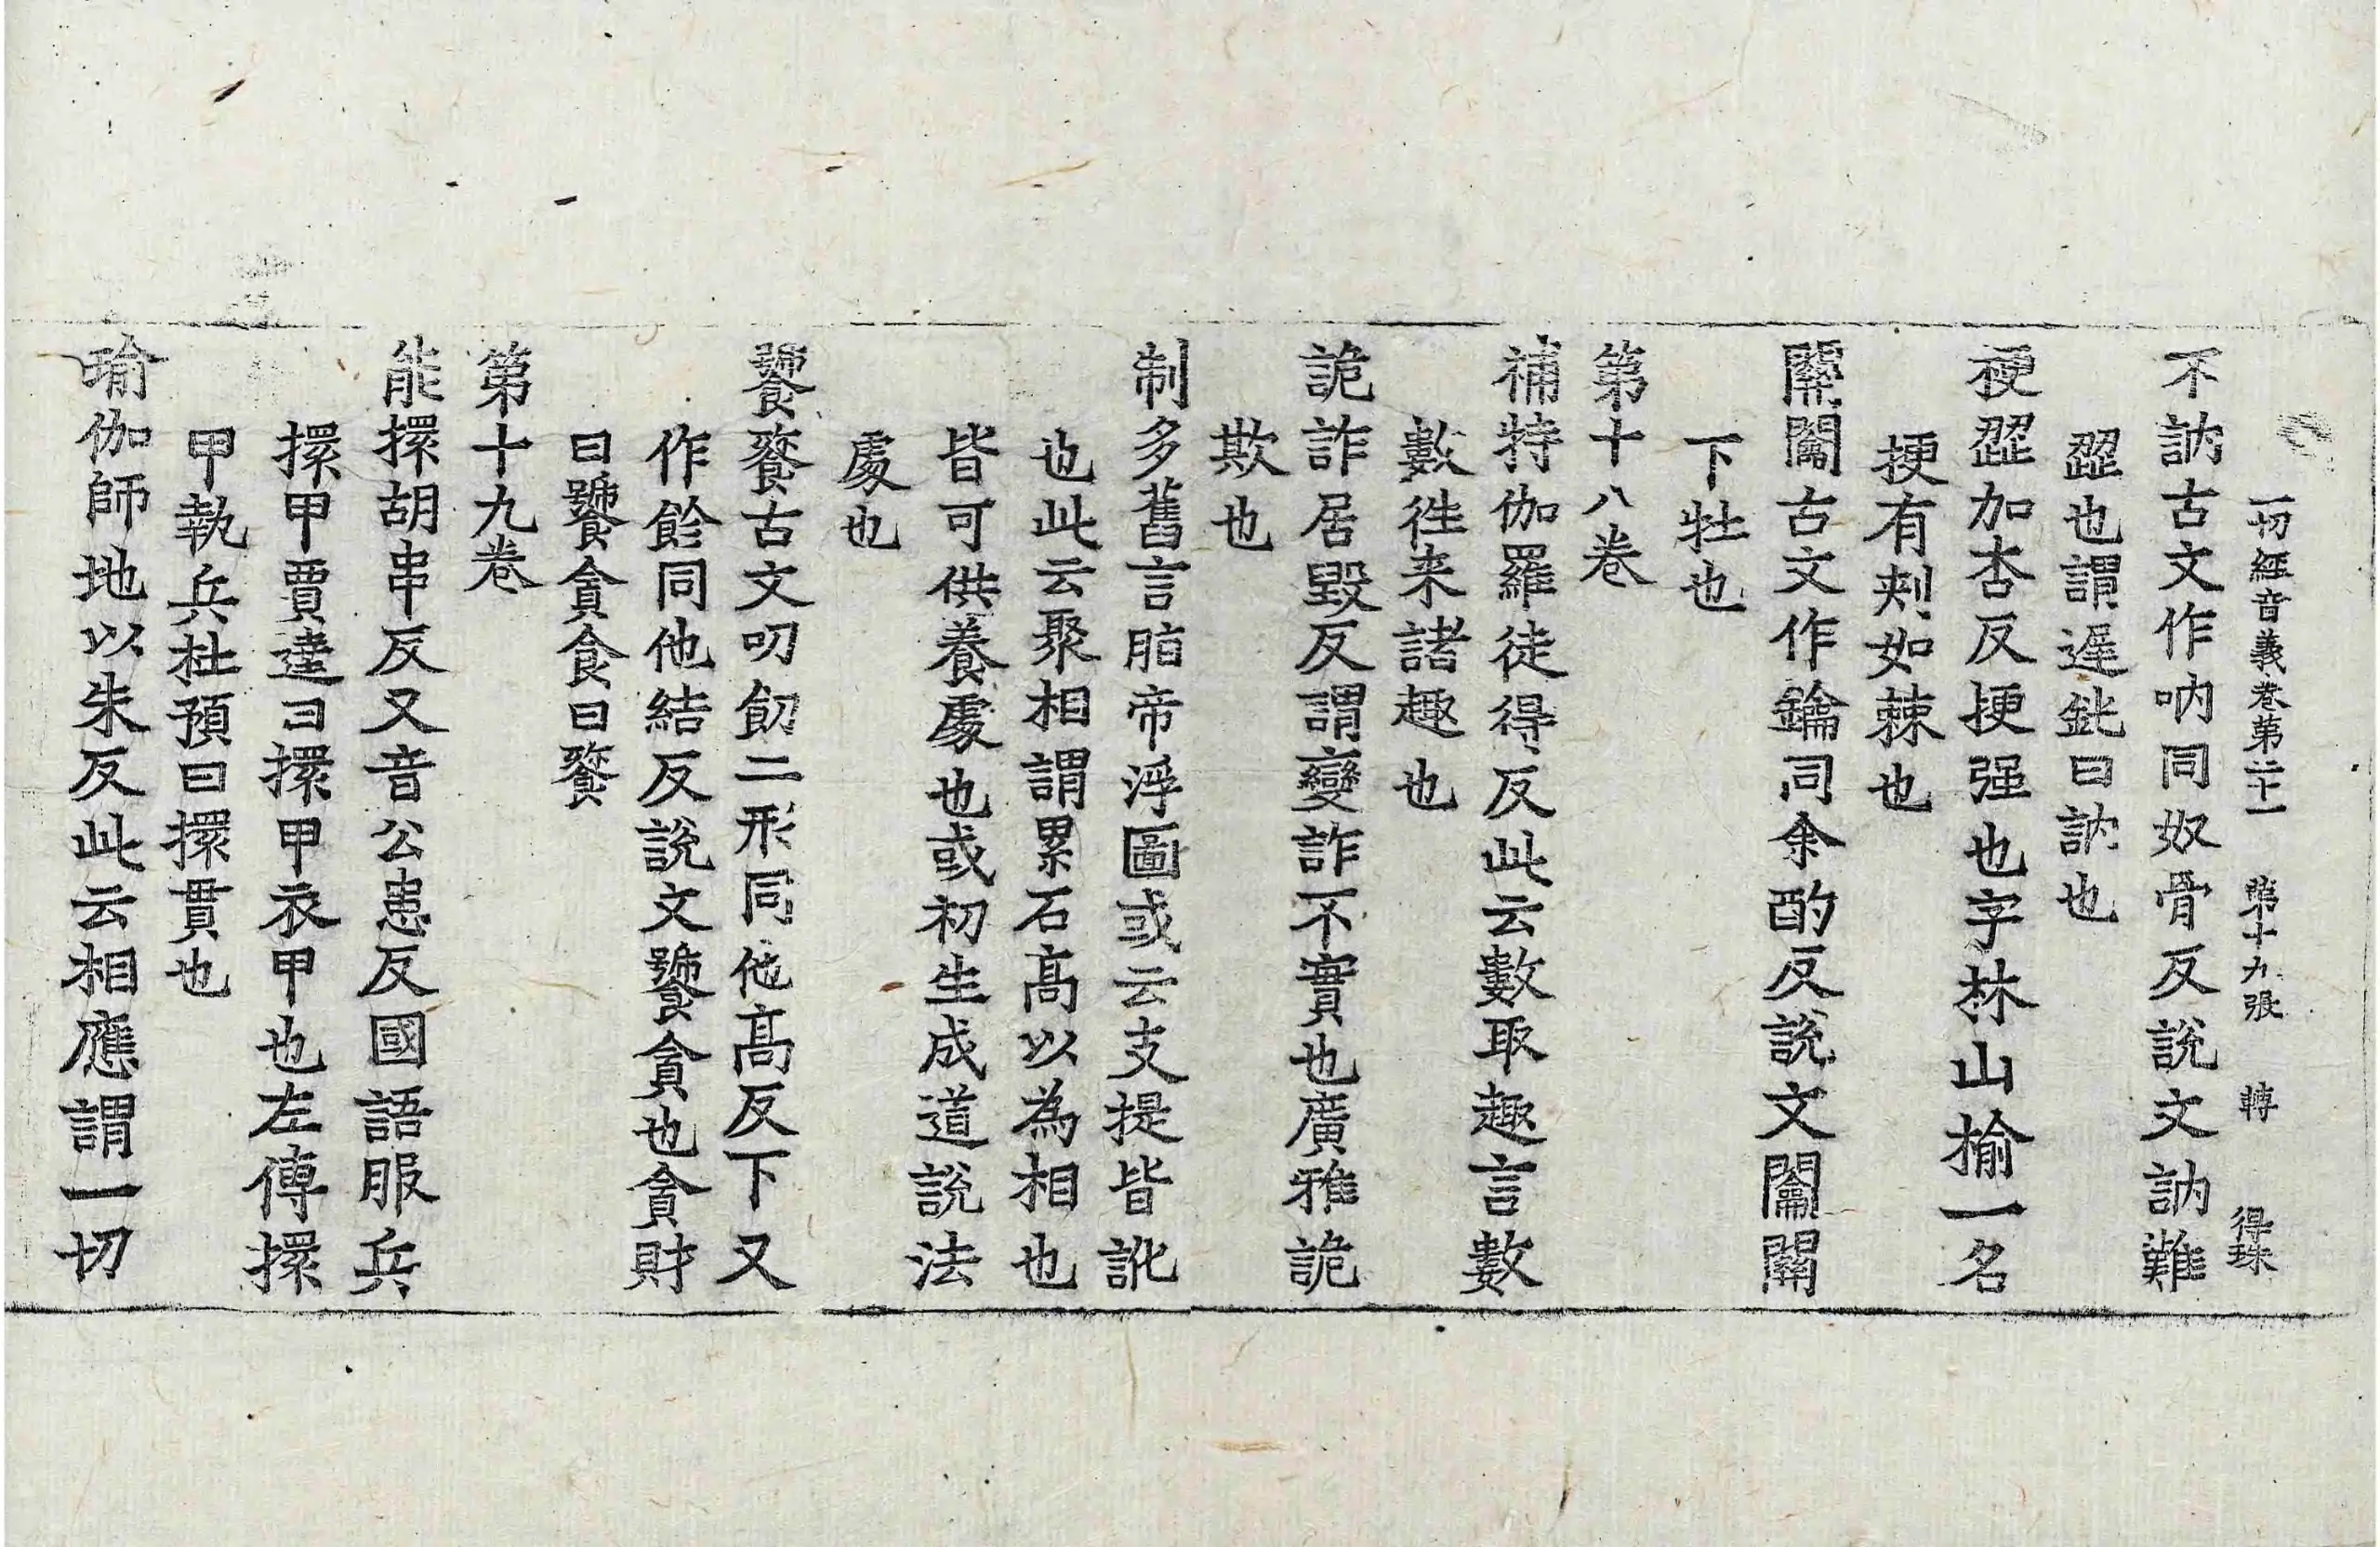 一切經音義卷第二十一 第十九張 轉 得珠
不訥古文作吶同奴骨反說文訥難
澀也謂遲鈍曰訥也
梗澀加杏反挭强也字林山榆一名
挭有刾如棘也
關闔古文作鑰同余酌反說文闔關
下牡也
第十八卷
補特伽羅徒得反此云數取趣言數
數徃来諸趣也
詭詐居毀反謂變詐不實也廣雅詭
欺也
制多舊言脂帝浮圖或云支提皆訛
也此云聚相謂累石高以為相也
皆可供養處也或初生成道說法
處也
饕餮古文叨飻二形同他高反下又
作飻同他結反說文饕貪也貪財
曰饕貪食曰餮
第十九卷
能擐胡串反又音公患反國語服兵
擐甲賈逵曰擐甲衣甲也左傳擐
甲執兵杜預曰擐貫也
瑜伽師地以朱反此云相應謂一切